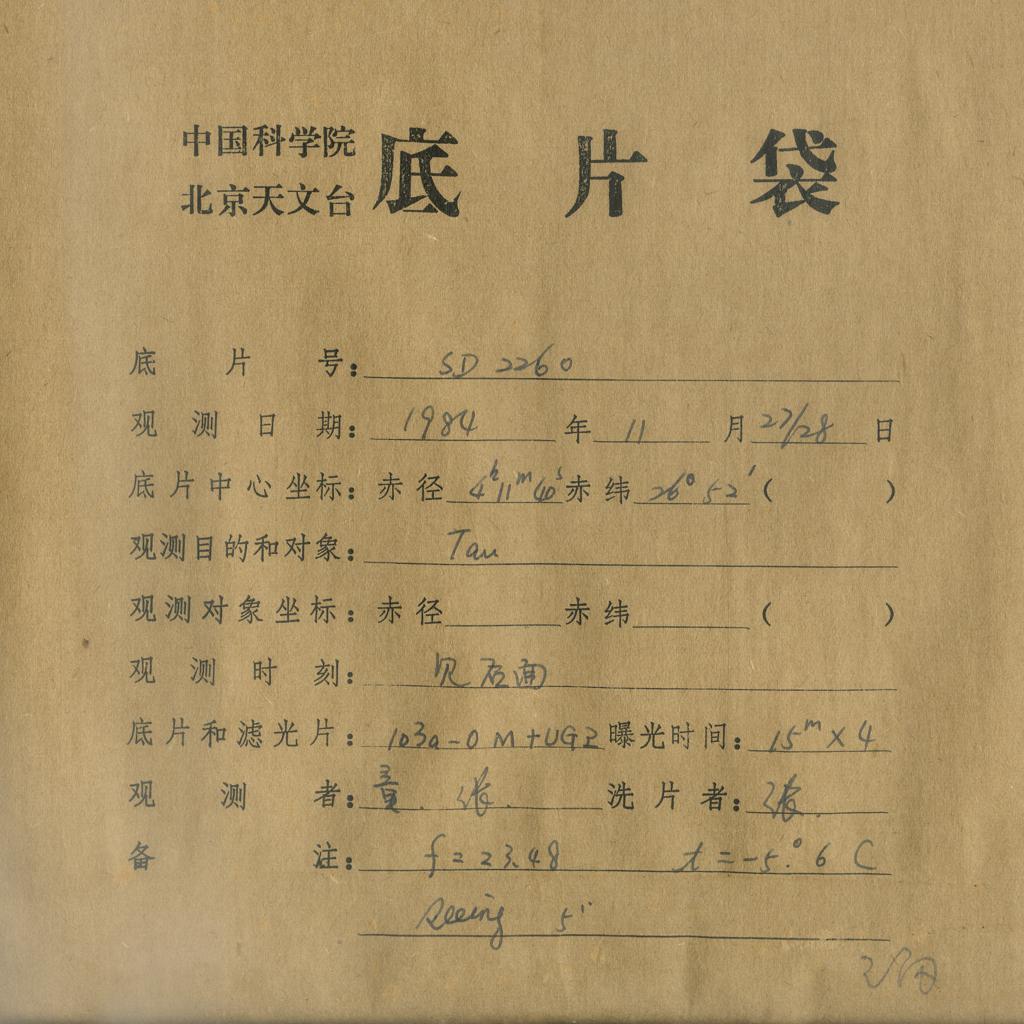 中国科学院
北京天文台
底片袋
底片号：SD 2260
观测日期：1984年11月27/28日
底片中心坐标：赤径4ʰ11ᵐ40ˢ赤纬26°52′（ ）
观测目的和对象：Tau
观测对象坐标：赤径 赤纬 （ ）
观测时刻：见右面
底片和滤光片：103a-O M+UG2曝光时间：15ᵐ×4
观测者： 张. 洗片者：张.
备注：f=23.48 t=-5.°6 C
seeing 5″